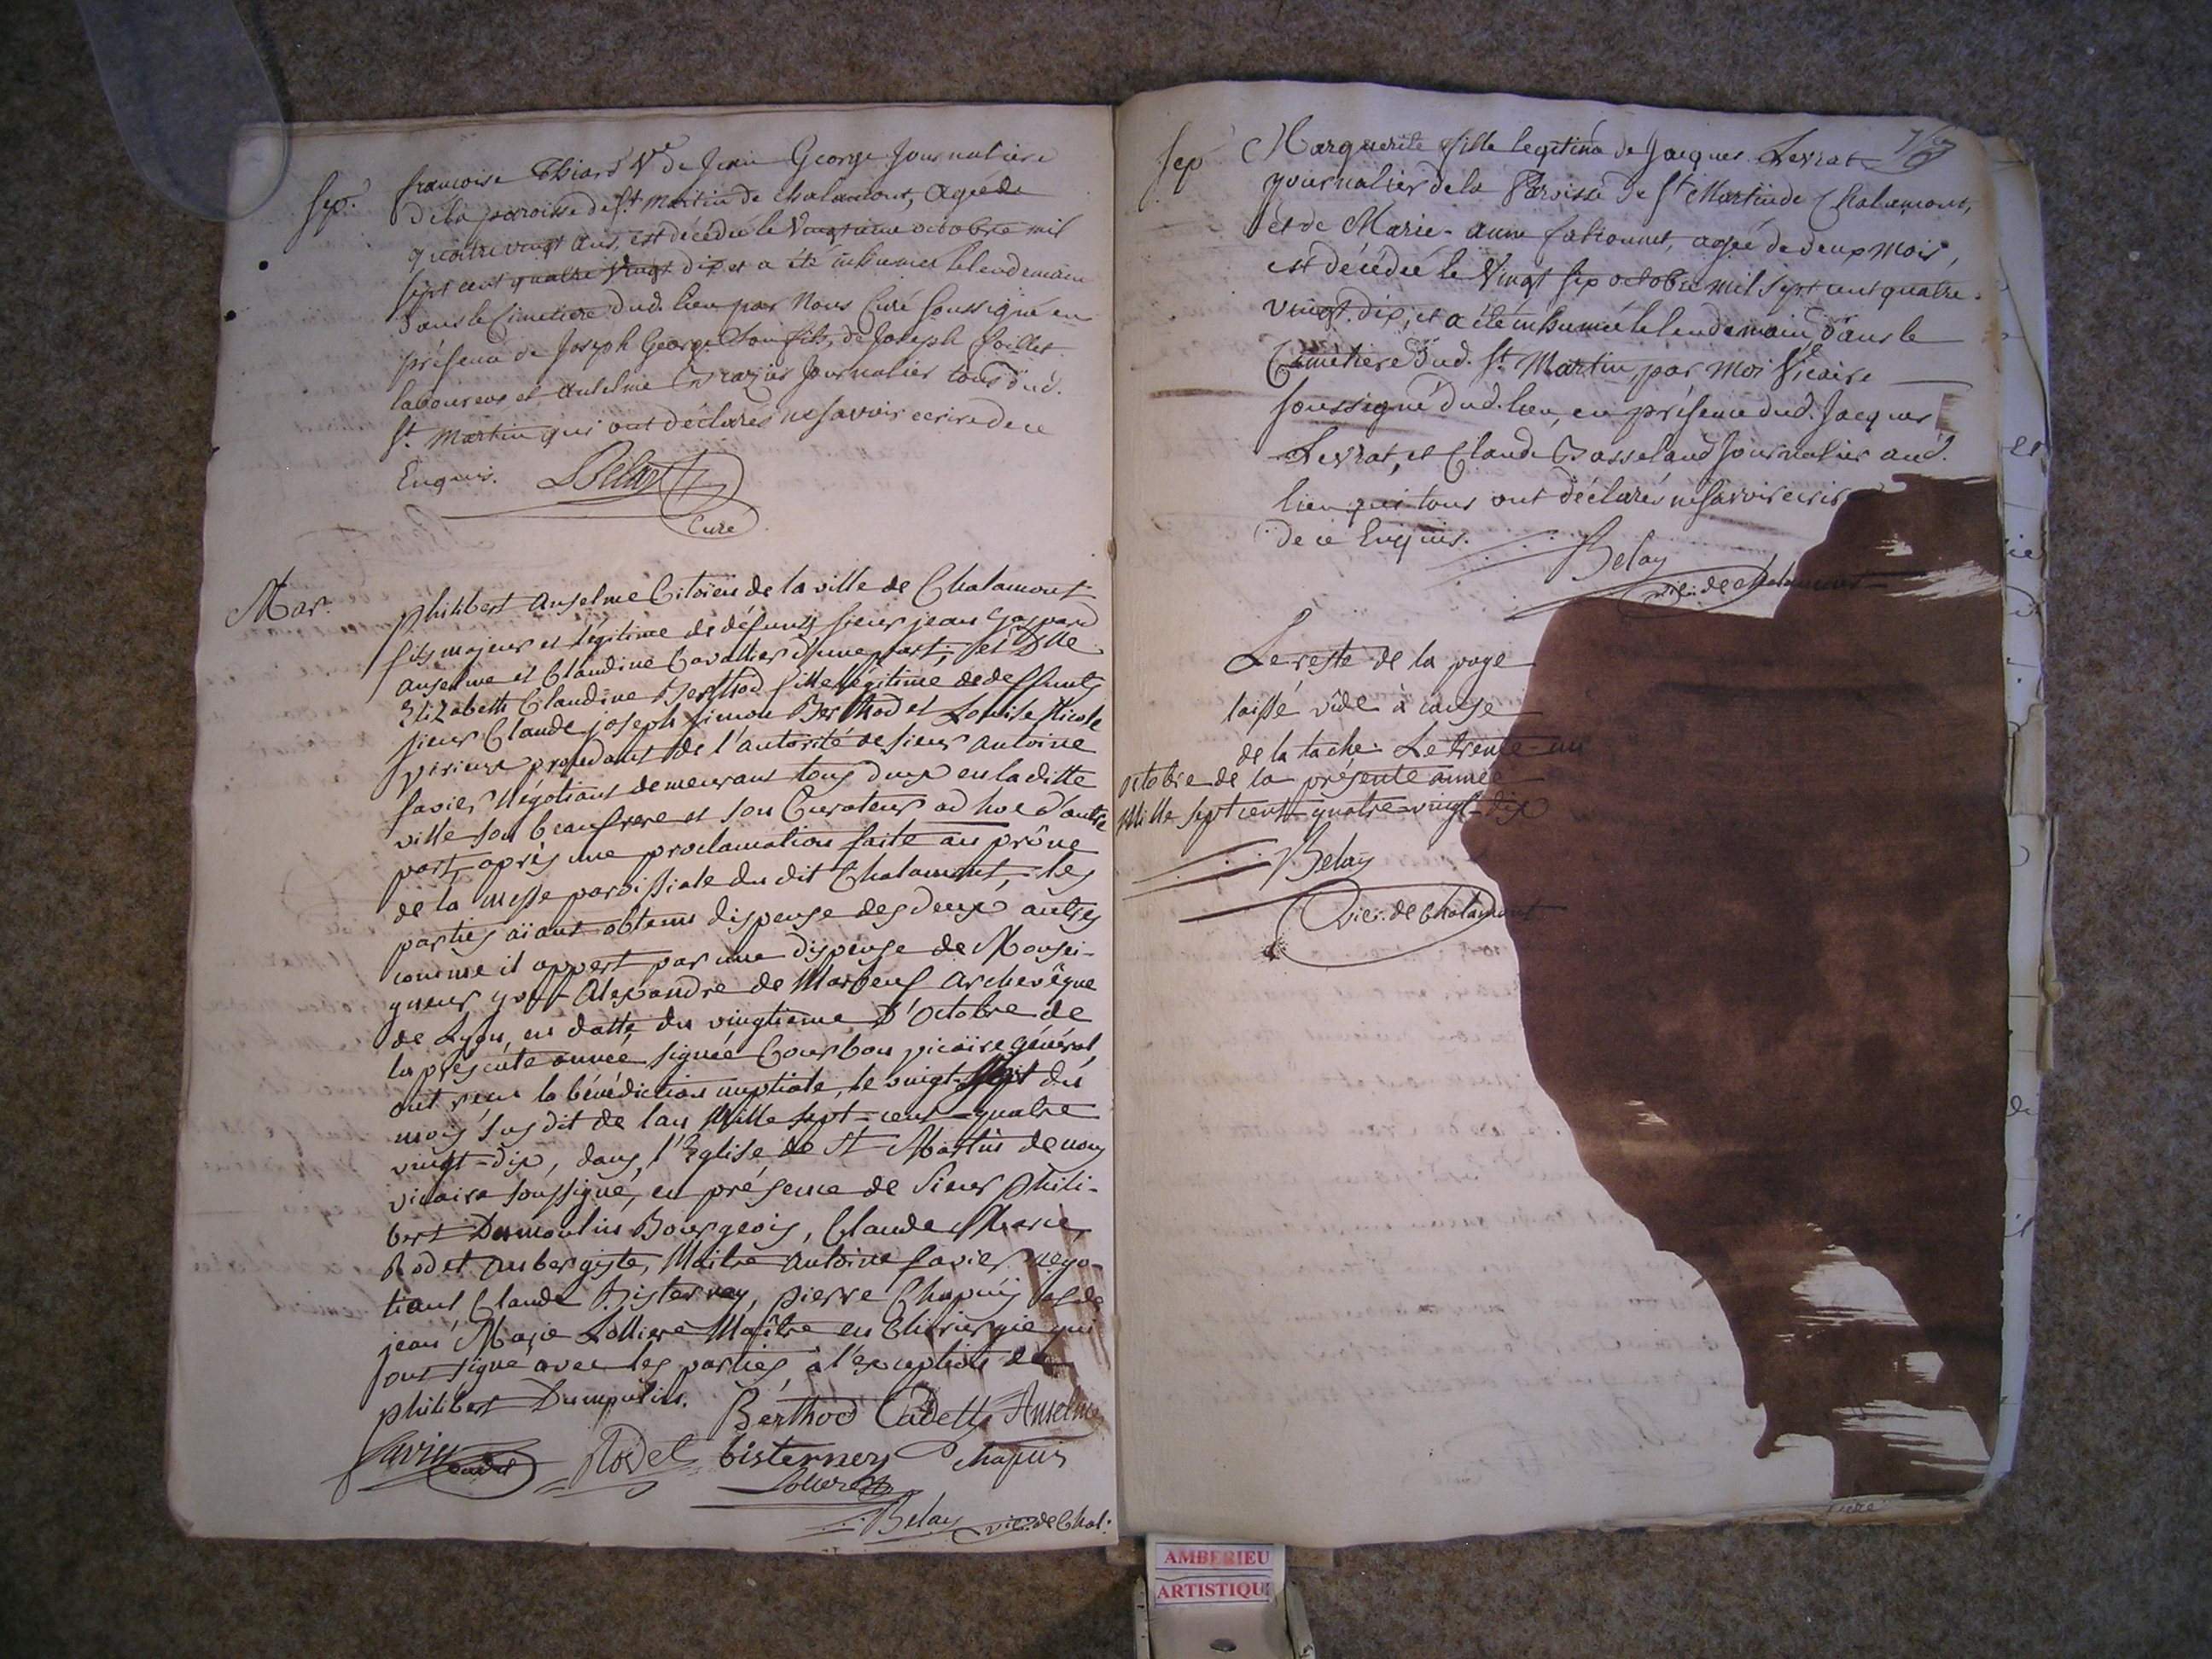 Sep.
françoise Thiard Ve de Jean George Journaliere
de la paroisse de St. Martin de Chalamont, agée de
quatre vingt ans, est décédée le Vingtieme octobre mil
sept cent quatre Vingt dix et a été inhumée le lendemain
dans le Cimetiere dud. lieu par Nous Curé soussigné en
présence de Joseph George Son fils, de Joseph
laboureur et Antelme Journalier tous dud.
St. Martin qui ont déclarés ne savoir ecrire de ce
Enquis.
Curé
Mar.
philibert Anselme Citoïen de la ville de Chalamont
fils majeur et légitime de défunts sieur jean Gaspard
Anselme et Claudine Cavallier d'une part; et Dlle
Elizabeth Claudine Berthod fille légitime de deffunts
sieur Claude joseph simon Berthod et Louise Nicole
procedant de l'autorité de sieur Antoine
favier Négotiant demeurant tous deux en la ditte
ville son beaufrere et son Curateur ad hoc d'autre
part, après une proclamation faite au prône
de la messe paroissiale du dit Chalamont, les
parties aïant obtenu dispense des deux autres
comme il appert par une dispense de Monsei-
gneur yves Alexandre de Marbeuf Archevêque
de Lyon, en datte du vingtieme d'Octobre de
la présente année signée Courbon vicaire général,
ont reçu la bénédiction nuptiale, le vingt-sept du
mois susdit de l'an Mille sept-cent-quatre
vingt-dix, dans l'Eglise de St Martin de nous
vicaire soussigné, en présence de sieur phili-
bert Dumoulin Bourgeois, Claude Marie
Rodet Aubergiste, Maitre Antoine favier négo-
tiant Claude Bisternay, pierre Chapuis et de
jean Marie Lolliere Maître en Chirurgie qui
ont signé avec les parties, à l'exception de
philibert Dumoulin. Berthod Cadette Anselme
favier Cadet Rodet bisterney Chapuis
Belay vic: de Chal.
Sep
Marguerite fille legitime de Jacques Levrat
journalier de la Paroisse de St Martin de Chalamont,
et de Marie-Anne agée de deux mois,
est décédée le Vingt six octobre mil sept cent quatre.
vingt. dix, et a été inhumée le lendemain, dans le
Cimetiere dud. St. Martin, par moi Vicaire
soussigné dud. lieu, en présence dud. Jacques
Levrat, et Claude Basseland Journalier aud.
lieu qui tous ont déclarés ne savoir ecrire
de ce Enquis.
Belay
vic: de Chalamont
Le reste de la page
laissé vide à cause
de la tache. Le trente-un
octobre de la présente année
Mille sept cent quatre-vingt-dix
Belay
vic: de Chalamont
AMBERIEU
ARTISTIQU